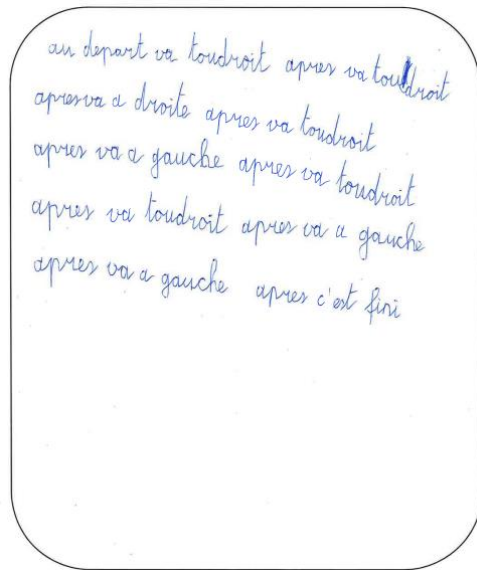 au depart va toudroit apres va toudroit
apres va a droite apres va toudroit
apres va a gauche apres va toudroit
apres va toudroit apres va a gauche
apres va a gauche apres c'est fini